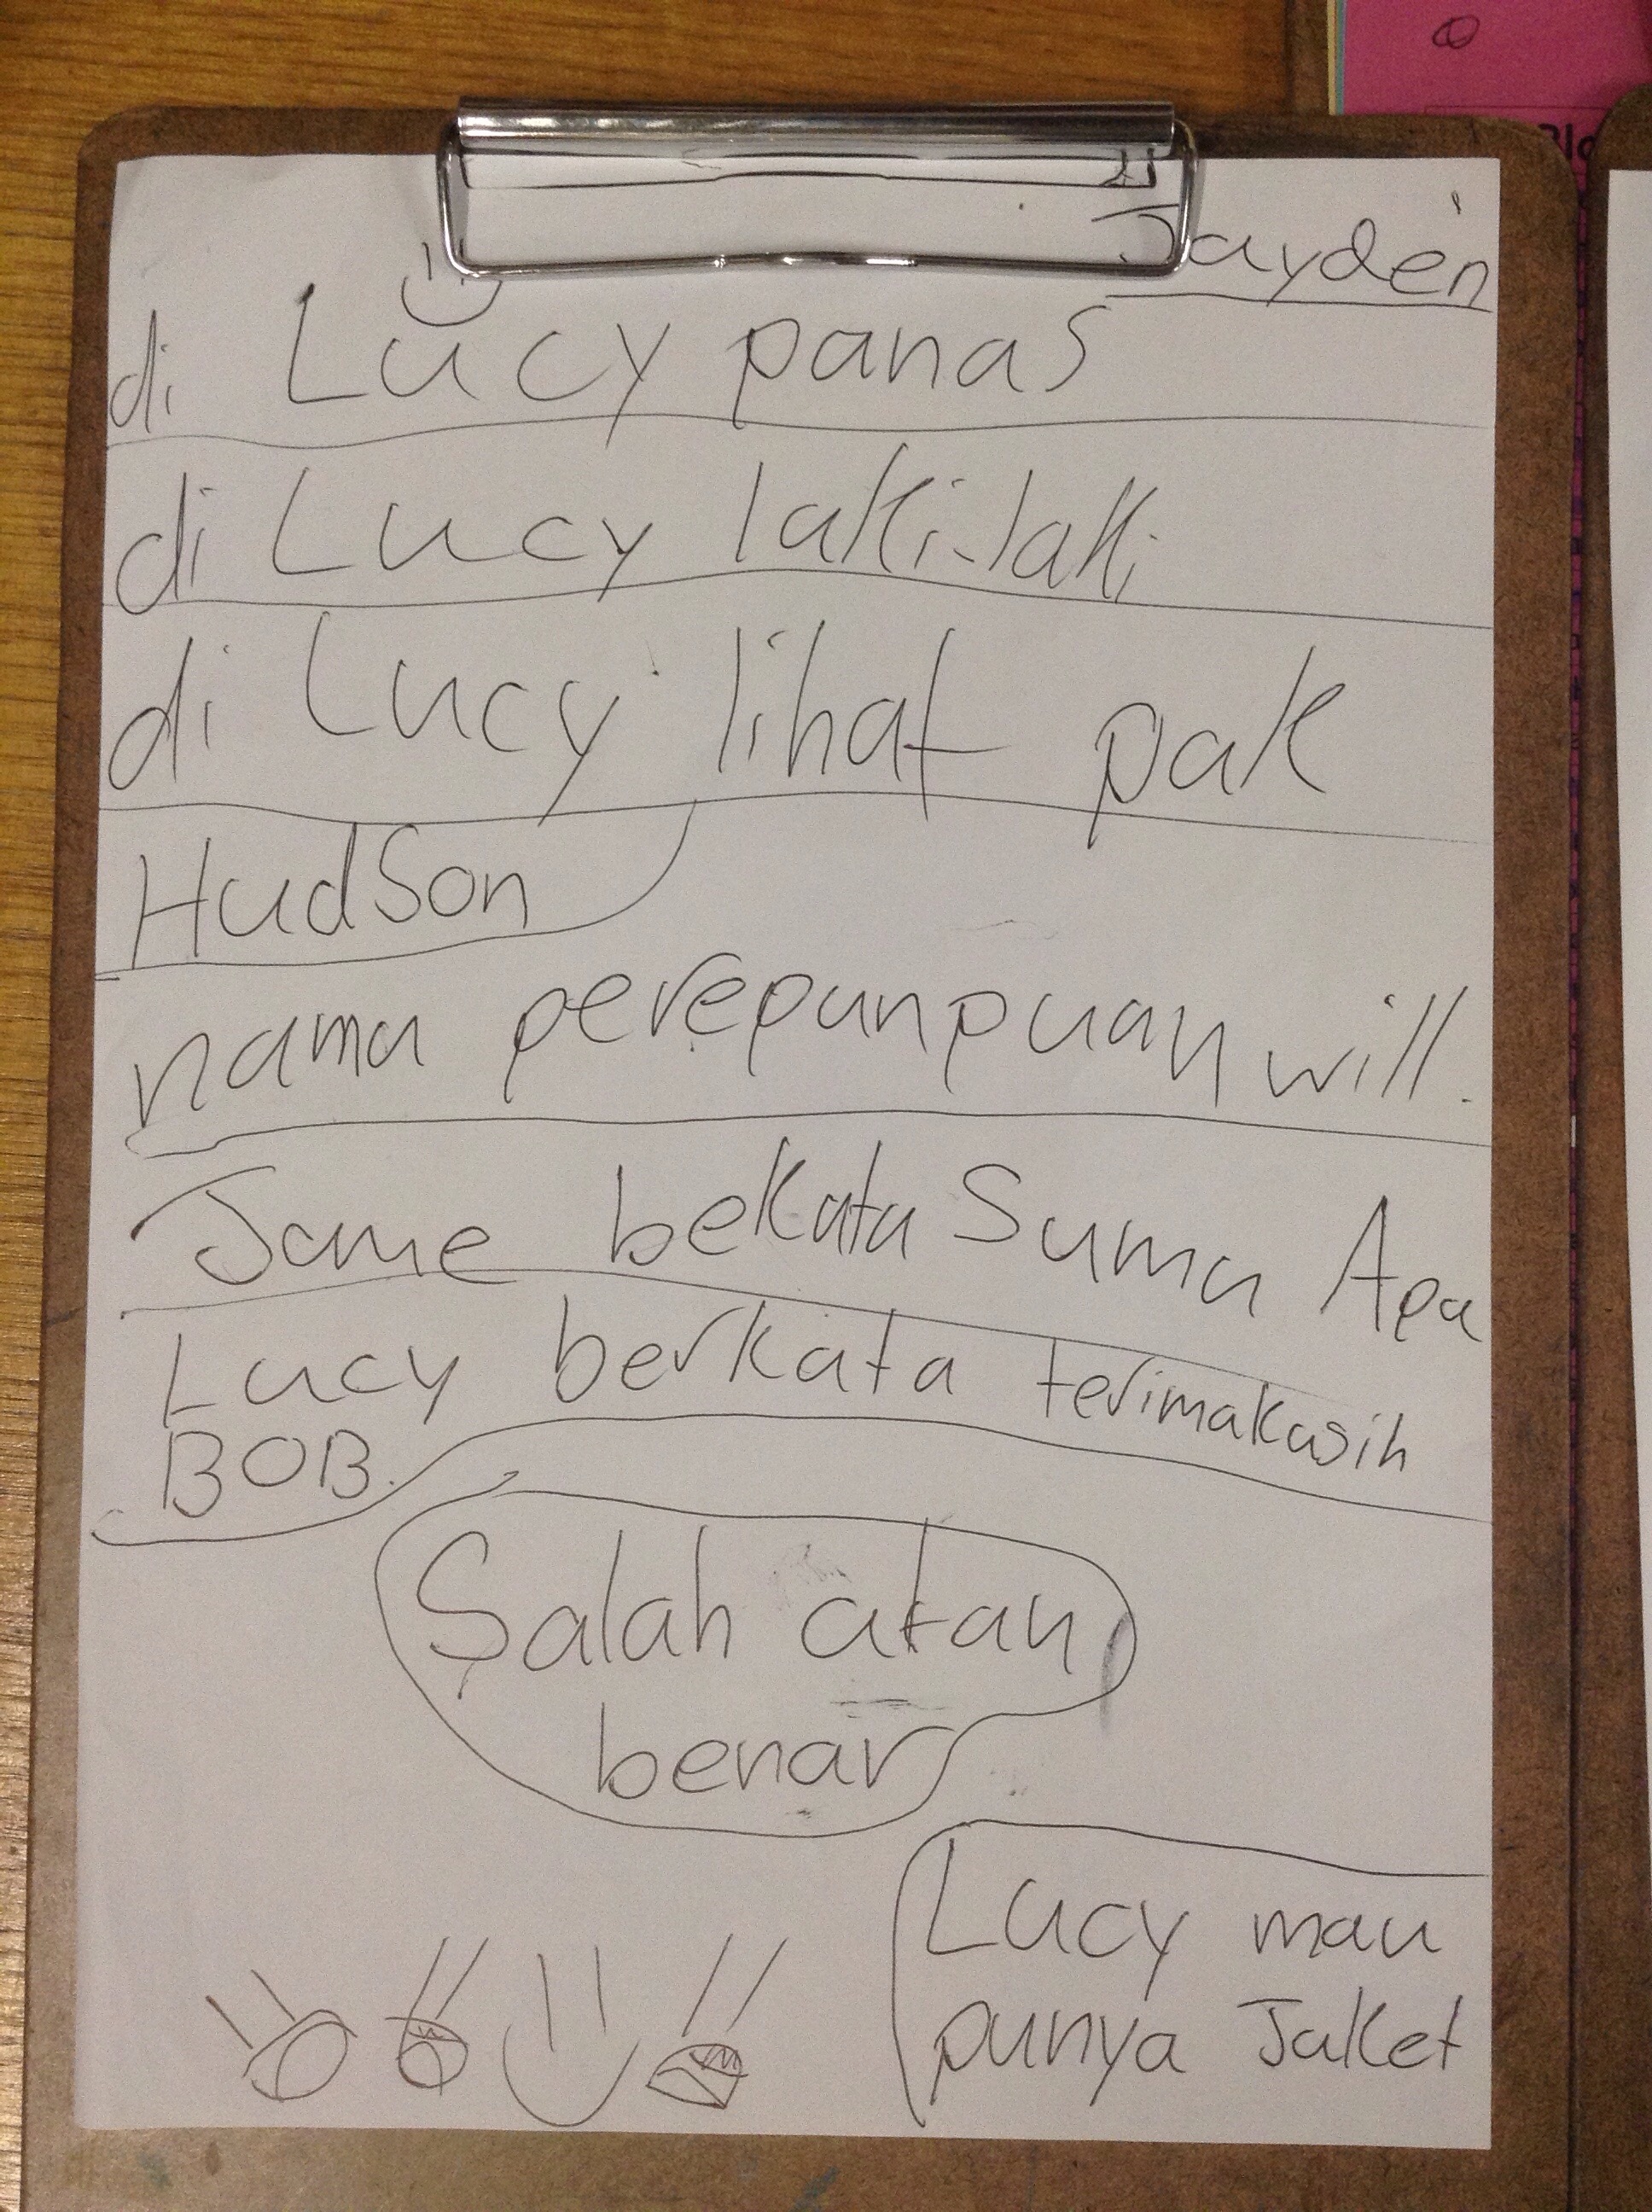 Jayden
di Lucy panas
di Lucy lakki-lakki
di Lucy lihat pak
Hudson
nama perepunpuan will.
Jame bekata Suma Apa
Lucy berkata terimakasih
BOB.
Salah atau
benar
Lucy mau
punya Jaket